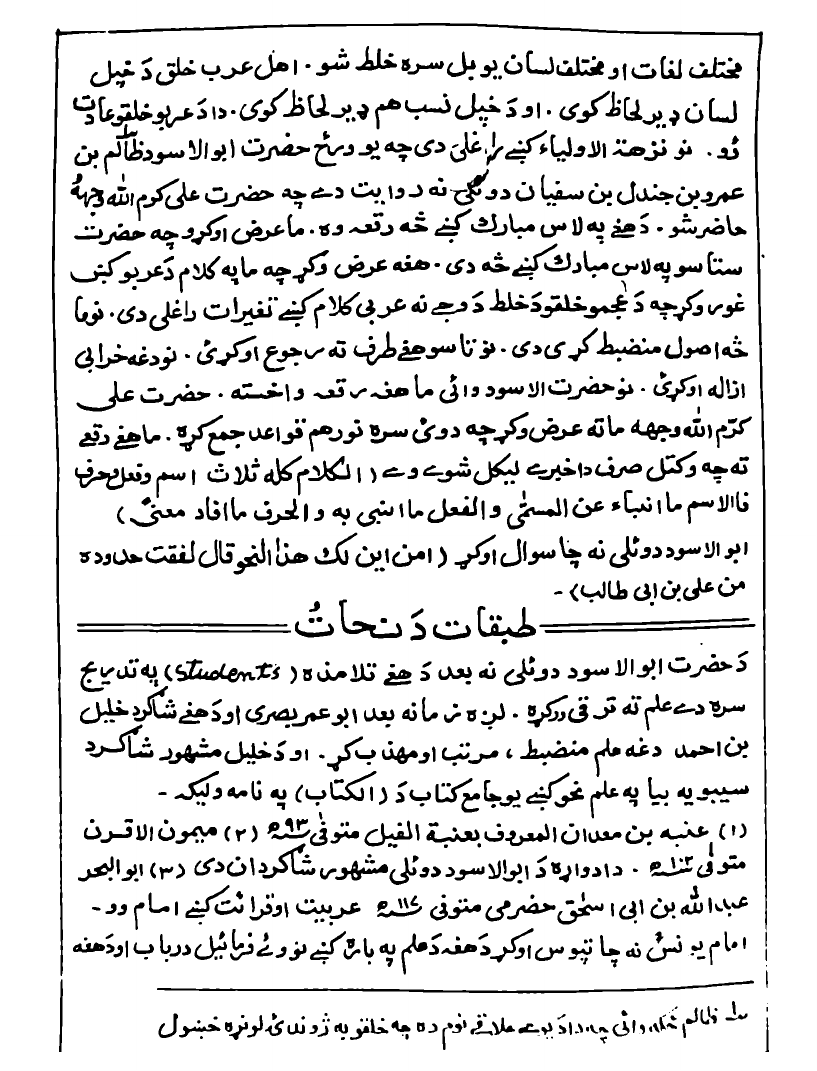 مختلف لغات او مختلف لسان يو بل سره خلط شو. اهل عرب خلق دَ خپل
لسان ډير لحاظ كوى. او دَ خپل نسب هم ډير لحاظ كوى. دا دَ عربو خلقو عادت
ؤو. نو نزهة الاولياء كښے راغلى دى چه يو ورځ حضرت ابو الاسود ظالم بن
عمرو بن جندل بن سفيان دوئلى نه روايت دے چه حضرت على كرم الله وجههُ
حاضر شو. دَهغے په لاس مبارك كښے څه رقعه وه. ما عرض اوكړو چه حضرت
ستاسو په لاس مبارك كښے څه دى. هغه عرض وكړ چه ما په كلام دَ عربو كښ
غور وكړ چه دَ عجمو خلقو دَ خلط دَ وجے نه عربى كلام كښے تغيرات راغلى دى. نو ما
څه اصول منضبط كړى دى. نو تاسو هغے طرف ته رجوع اوكړئ. نو دغه خرابى
ازاله اوكړئ. نو حضرت الاسود وائى ما هغه رقعه واخسته. حضرت على
كرّم الله وجهه ماته عرض وكړ چه دوئ سره نور هم قواعد جمع كړه. ما هغے رقعے
ته چه وكتل صرف دا خبرے ليكل شوے وے (الكلام كله ثلاث اسم وفعل وحرف
فاالاسم ما انباء عن المسمّٰى والفعل ما انبى به والحرف ما افاد معنىً)
ابو الاسود دوئلى نه چا سوال اوكړ (امن اين لك هذا النحو قال لفقت حدوده
من على بن ابى طالب) -
طبقات دَ نحاتُ
دَ حضرت ابو الاسود دوئلى نه بعد دَ هغے تلامذه (Students) په تدريج
سره دے علم ته ترقى وركړه. لږه زمانه بعد ابو عمر بصرى او دَهغے شاګرد خليل
بن احمد دغه علم منضبط، مرتب او مهذب كړ. او دَ خليل مشهور شاګرد
سيبويه بيا په علم نحو كښے يو جامع كتاب دَ (الكتاب) په نامه وليكه -
(۱) عنبه بن معدان المعروف بعنبة الفيل متوفىٰ سنه ۹۳ھ (۲) ميمون الاقرن
متوفىٰ سنه ۱۰۲ھ. دا دواړه دَ ابو الاسود دوئلى مشهور شاګردان دى (۳) ابو البحر
عبد الله بن ابى اسحٰق حضرمى متوفى سنه ۱۱۷ھ عربيت او قرائت كښے امام وو -
امام يونسؒ نه چا تپوس اوكړ دَ هغه دَ علم په باره كښے نو وئے فرمائيل درياب او دَهغه
ظالم ځكه وائى چه دا دَ يوے علاقے نوم ده چه خلقو به ژوندئ لوڼړه خښول